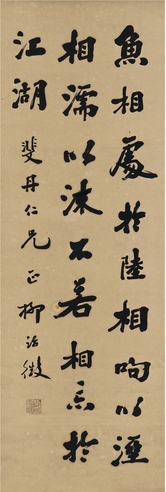 魚相處於陸相呴以溼
相濡以沫不若相忘於
江湖 斐丹仁兄 正 柳詒徵